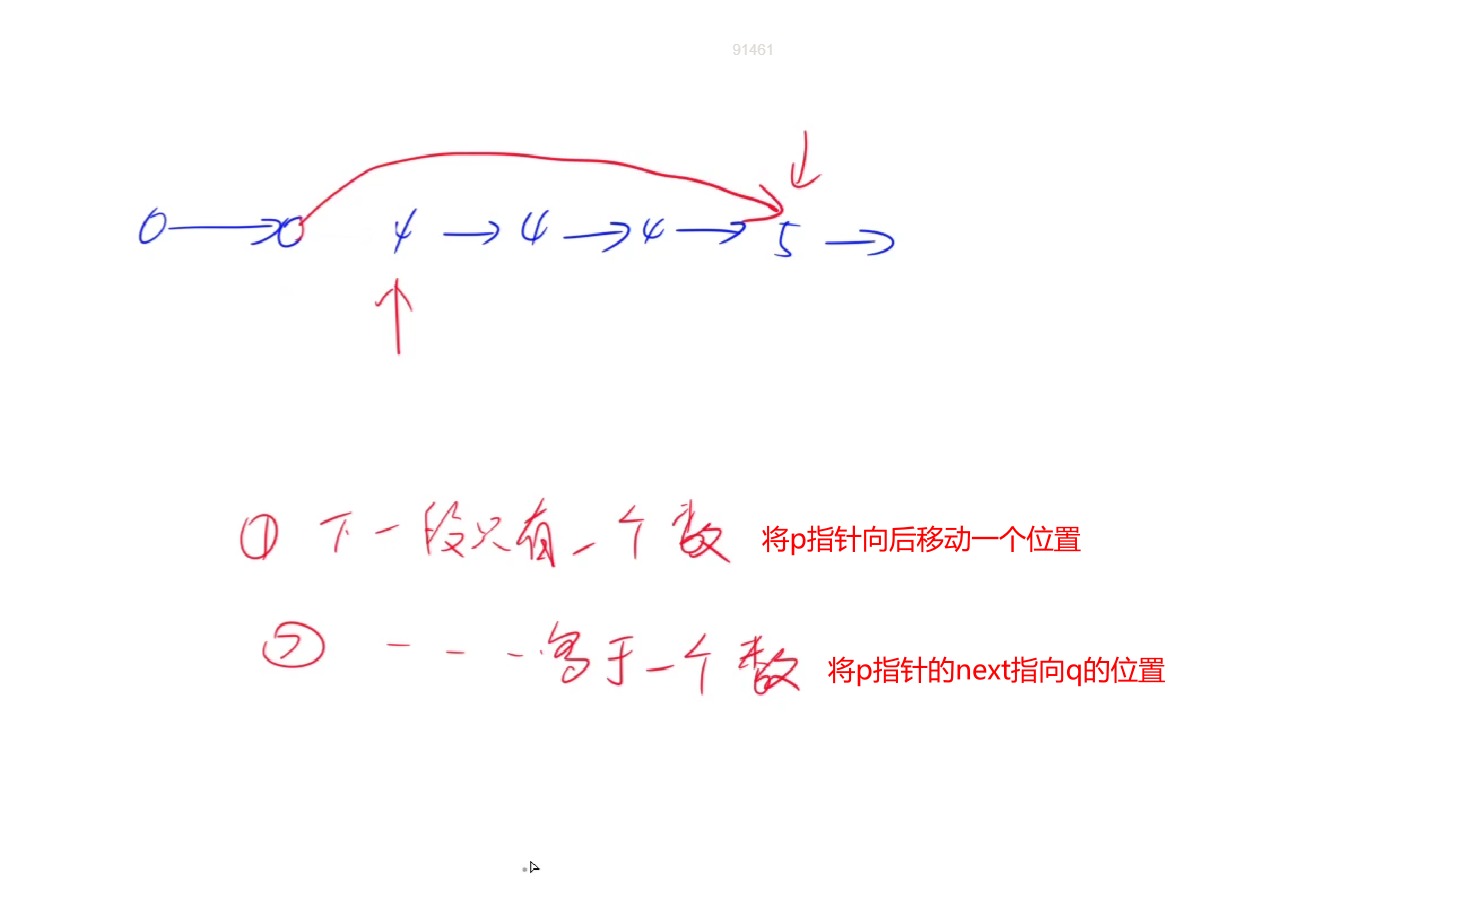 91461
0 → 0 4 → 4 → 4 → 5 →
① 下一段只有一个数 将p指针向后移动一个位置
② - - - 高于一个数 将p指针的next指向q的位置